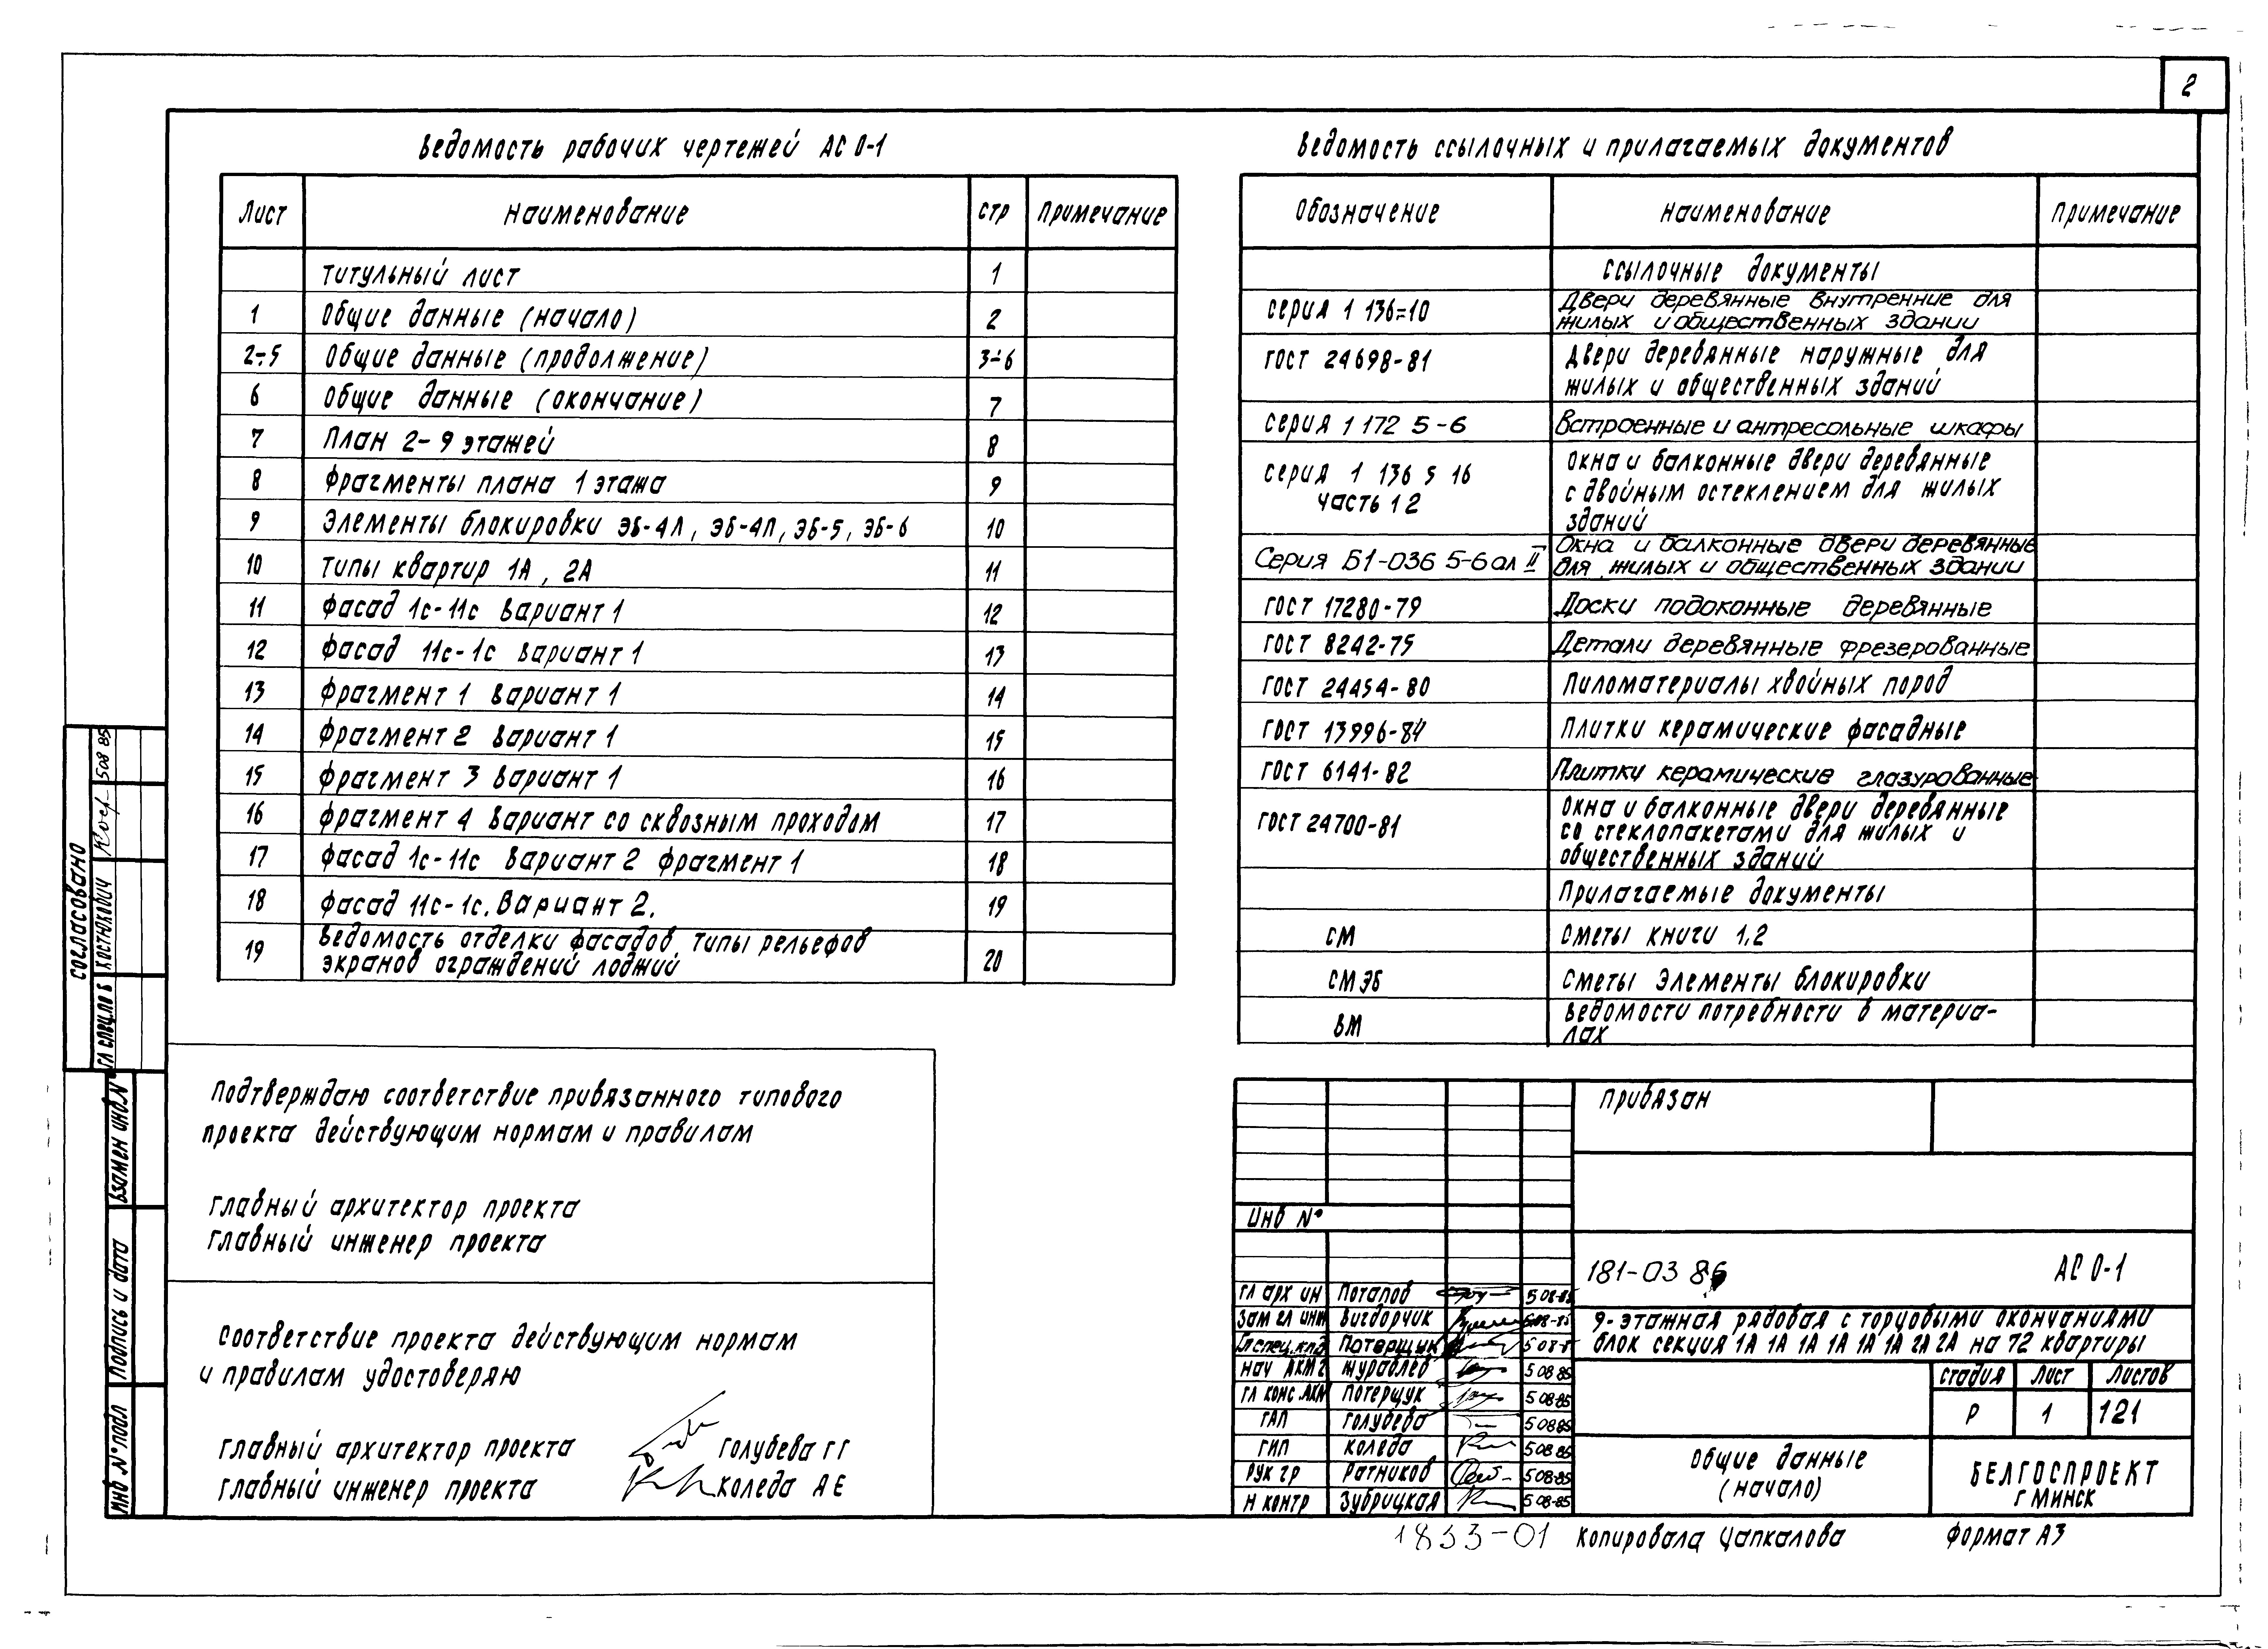 2
Ведомость рабочих чертежей АС 0-1
Лист Наименование стр Примечание
Титульный лист 1
1 Общие данные (начало) 2
2÷5 Общие данные (продолжение) 3÷6
6 Общие данные (окончание) 7
7 План 2-9 этажей 8
8 Фрагменты плана 1 этажа 9
9 Элементы блокировки ЭБ-4Л, ЭБ-4П, ЭБ-5, ЭБ-6 10
10 Типы квартир 1А, 2А 11
11 Фасад 1с-11с Вариант 1 12
12 Фасад 11с-1с Вариант 1 13
13 Фрагмент 1 Вариант 1 14
14 Фрагмент 2 Вариант 1 15
15 Фрагмент 3 Вариант 1 16
16 Фрагмент 4 Вариант со сквозным проходом 17
17 Фасад 1с-11с Вариант 2 Фрагмент 1 18
18 Фасад 11с-1с. Вариант 2. 19
19 Ведомость отделки фасадов, типы рельефов
экранов ограждений лоджий 20
Ведомость ссылочных и прилагаемых документов
Обозначение Наименование Примечание
Ссылочные документы
серия 1 136-10 Двери деревянные внутренние для
жилых и общественных здании
ГОСТ 24698-81 Двери деревянные наружные для
жилых и общественных зданий
серия 1 172 5-6 Встроенные и антресольные шкафы
серия 1 136 5 16 Окна и балконные двери деревянные
часть 1 2 с двойным остеклением для жилых
зданий
Серия Б1-036 5-6 ал II Окна и балконные двери деревянные
для жилых и общественных здании
ГОСТ 17280-79 Доски подоконные деревянные
ГОСТ 8242-75 Детали деревянные фрезерованные
ГОСТ 24454-80 Пиломатериалы хвойных пород
ГОСТ 13996-84 Плитки керамические фасадные
ГОСТ 6141-82 Плитки керамические глазурованные
ГОСТ 24700-81 Окна и балконные двери деревянные
со стеклопакетами для жилых и
общественных зданий
Прилагаемые документы
СМ Сметы книги 1,2
СМ ЭБ Сметы Элементы блокировки
ВМ Ведомости потребности в материа-
лах
Подтверждаю соответствие привязанного типового
проекта действующим нормам и правилам
Главный архитектор проекта
Главный инженер проекта
Соответствие проекта действующим нормам
и правилам удостоверяю
Главный архитектор проекта Голубева Г Г
Главный инженер проекта Коледа А Е
Согласовано
Гл спец по в Костюкович 508 85
Взамен инв N°
Подпись и дата
Инв N° подл
Привязан
Инв N°
181-03 86 АС 0-1
Гл арх ин Потапов 5 08-85
Зам гл инж Вигдорчик 508-85
Гл спец. Потерщук 5 08-8
Нач АКМ 2 Журавлев 5 08 85
Гл конс АКМ Потерщук 5 08-85
ГАП Голубева 5 08 85
ГИП Коледа 5 08 85
Рук гр Ратников 5 08-85
Н контр Зубрицкая 5 08-85
9-этажная рядовая с торцовыми окончаниями
блок секция 1А 1А 1А 1А 1А 1А 2А 2А на 72 квартиры
Стадия Лист Листов
Р 1 121
Общие данные
(начало)
БЕЛГОСПРОЕКТ
г Минск
1833-01 Копировала Цапкалова Формат А3